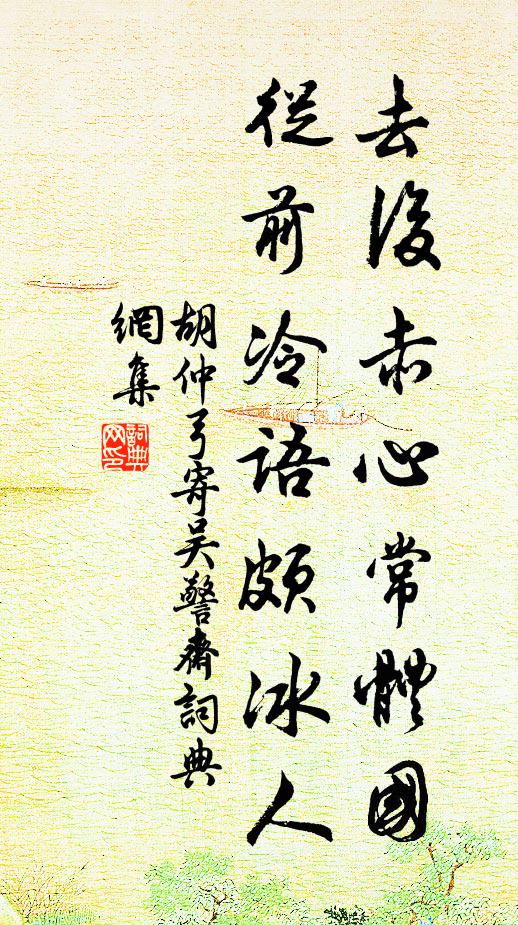 去後赤心常體國
從前冷語頗冰人
胡仲弓寄吴警齋詞典
網集
詞典
网印